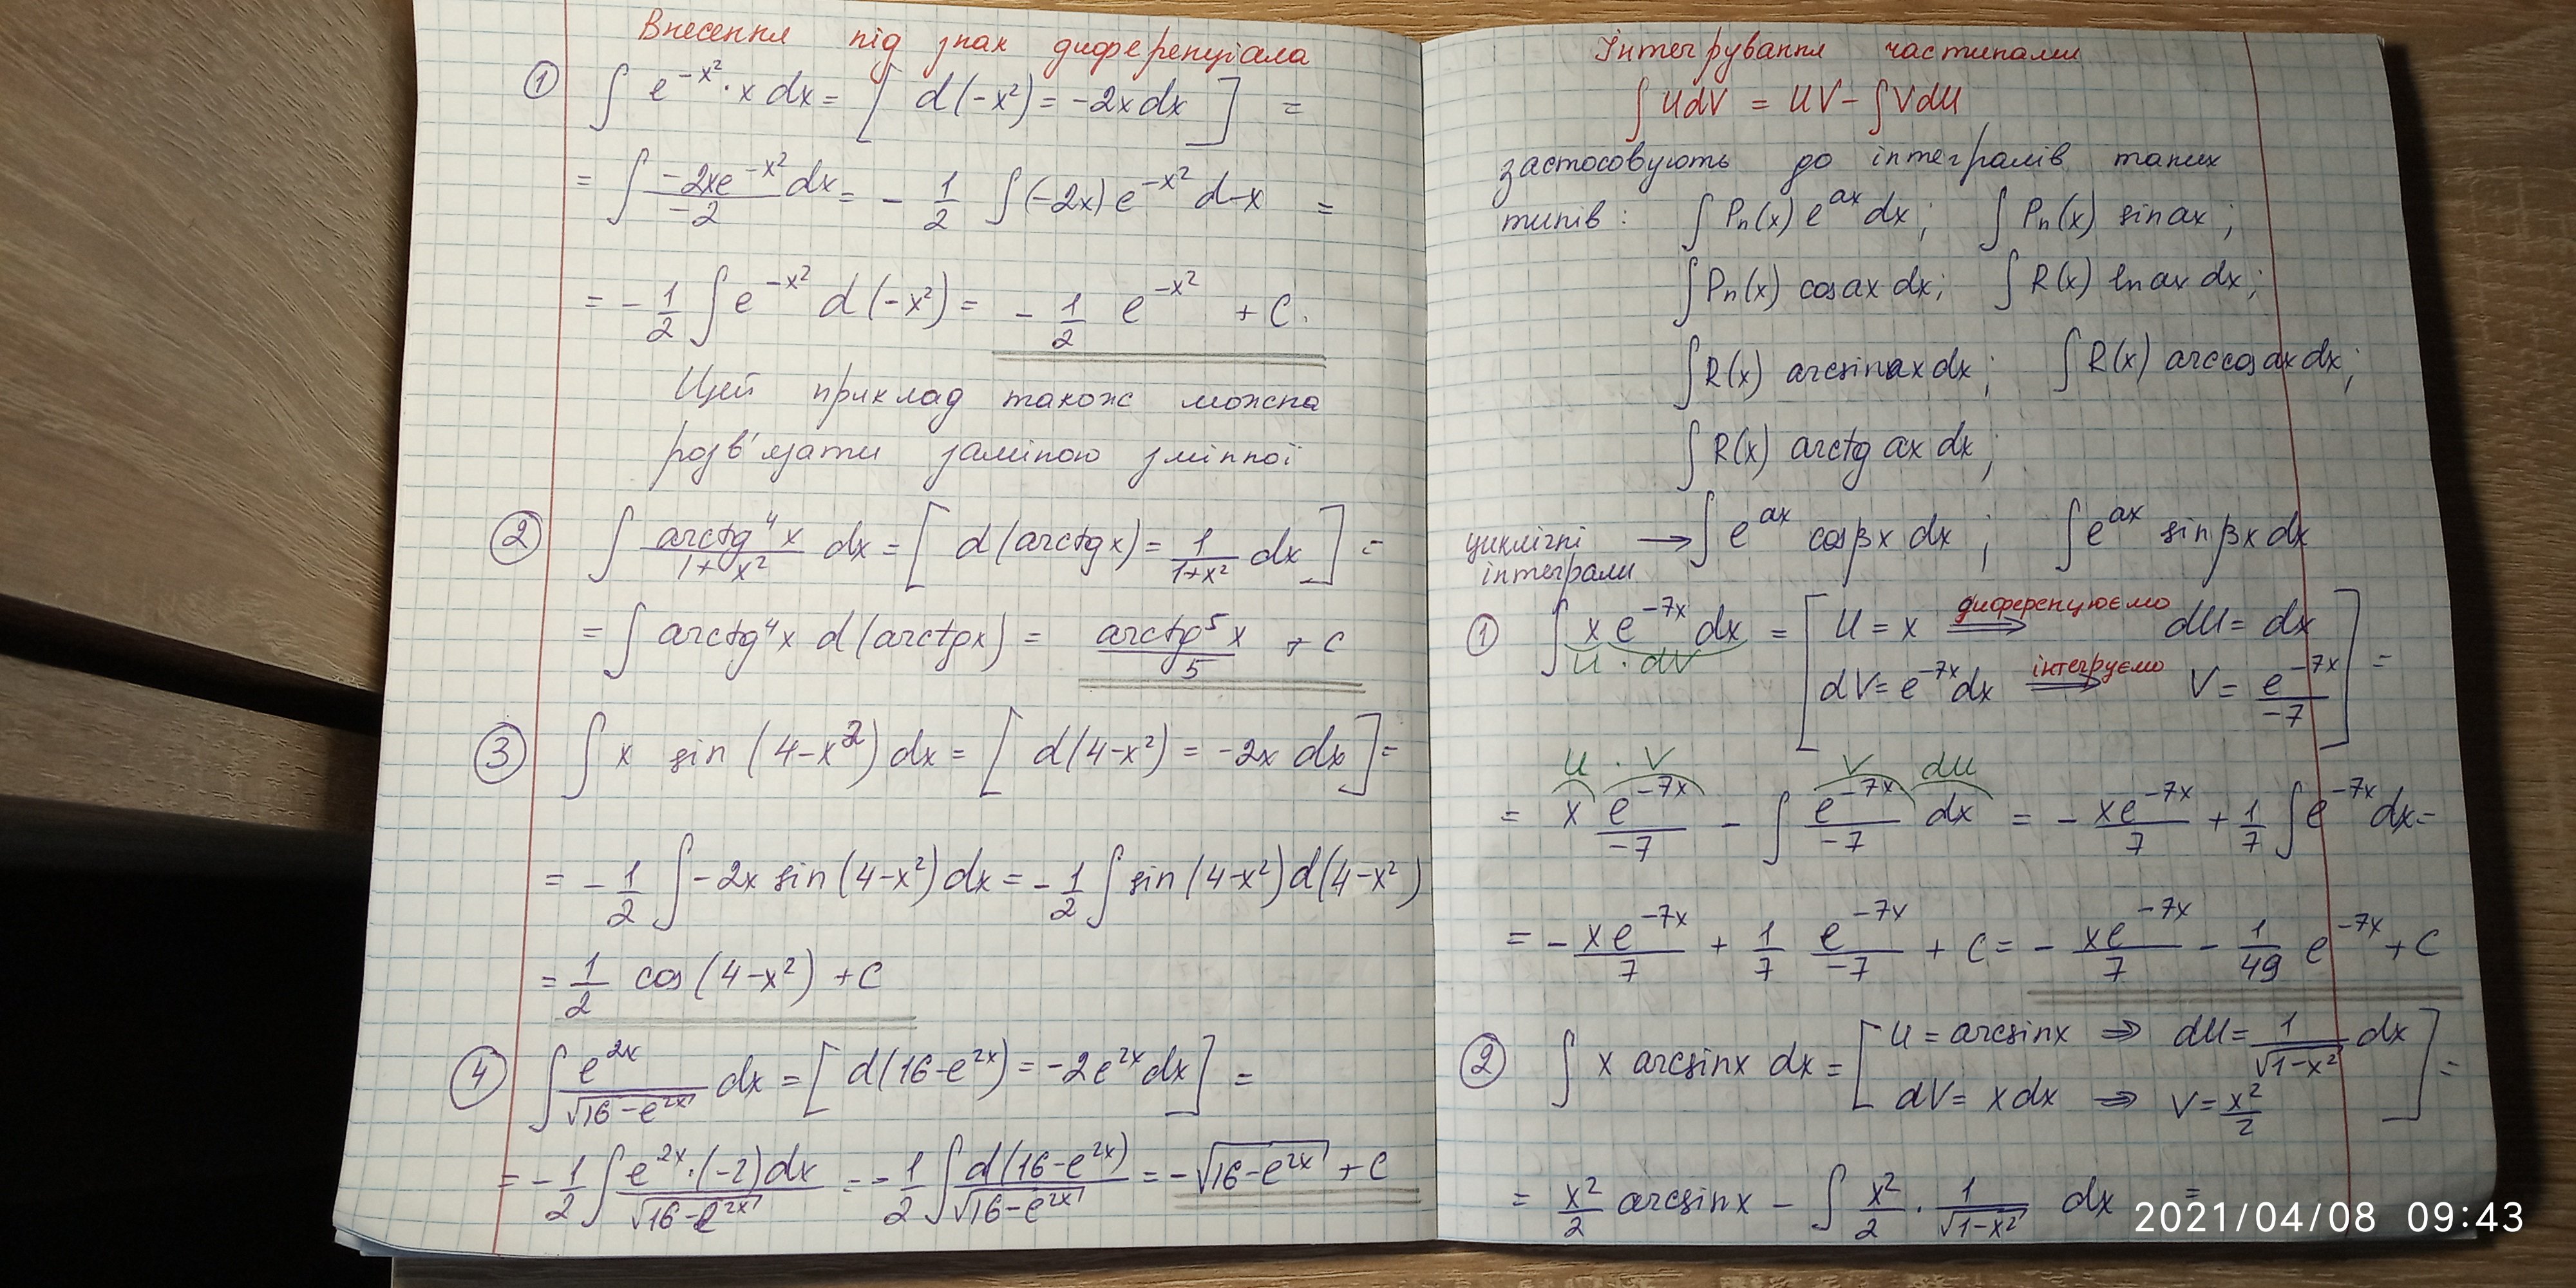 Внесення під знак диференціала
① ∫ e^{-x²}·x dx = [ d(-x²) = -2x dx ] =
= ∫ \frac{-2xe^{-x²}}{-2} dx = - \frac{1}{2} ∫ (-2x) e^{-x²} d-x =
= - \frac{1}{2} ∫ e^{-x²} d(-x²) = - \frac{1}{2} e^{-x²} + C.
Цей приклад також можна
розв'язати заміною змінної
② ∫ \frac{arctg⁴x}{1+x²} dx = [ d(arctgx) = \frac{1}{1+x²} dx ] =
= ∫ arctg⁴x d(arctgx) = \frac{arctg⁵x}{5} + C
③ ∫ x sin(4-x²) dx = [ d(4-x²) = -2x dx ] =
= - \frac{1}{2} ∫ -2x sin(4-x²) dx = - \frac{1}{2} ∫ sin(4-x²) d(4-x²)
= \frac{1}{2} cos(4-x²) + C
④ ∫ \frac{e^{2x}}{\sqrt{16-e^{2x}}} dx = [ d(16-e^{2x}) = -2e^{2x} dx ] =
= - \frac{1}{2} ∫ \frac{e^{2x}·(-2)dx}{\sqrt{16-e^{2x}}} = - \frac{1}{2} ∫ \frac{d(16-e^{2x})}{\sqrt{16-e^{2x}}} = - \sqrt{16-e^{2x}} + C
Інтегрування частинами
∫ UdV = UV - ∫ VdU
застосовують до інтегралів таких
типів: ∫ Pn(x) e^{ax} dx; ∫ Pn(x) sin ax;
∫ Pn(x) cos ax dx; ∫ R(x) ln ax dx;
∫ R(x) arcsin ax dx; ∫ R(x) arccos ax dx;
∫ R(x) arctg ax dx;
циклічні інтеграли → ∫ e^{ax} cos βx dx; ∫ e^{ax} sin βx dx
① ∫ x e^{-7x} dx = [ U = x ⇒ dU = dx
диференціюємо
U · dV
dV = e^{-7x} dx ⇒ V = \frac{e^{-7x}}{-7} ] =
інтегруємо
U · V V dU
= x \frac{e^{-7x}}{-7} - ∫ \frac{e^{-7x}}{-7} dx = - \frac{xe^{-7x}}{7} + \frac{1}{7} ∫ e^{-7x} dx =
= - \frac{xe^{-7x}}{7} + \frac{1}{7} \frac{e^{-7x}}{-7} + C = - \frac{xe^{-7x}}{7} - \frac{1}{49} e^{-7x} + C
② ∫ x arcsinx dx = [ U = arcsinx ⇒ dU = \frac{1}{\sqrt{1-x²}} dx
dV = x dx ⇒ V = \frac{x²}{2} ] =
= \frac{x²}{2} arcsinx - ∫ \frac{x²}{2} · \frac{1}{\sqrt{1-x²}} dx =
2021/04/08 09:43